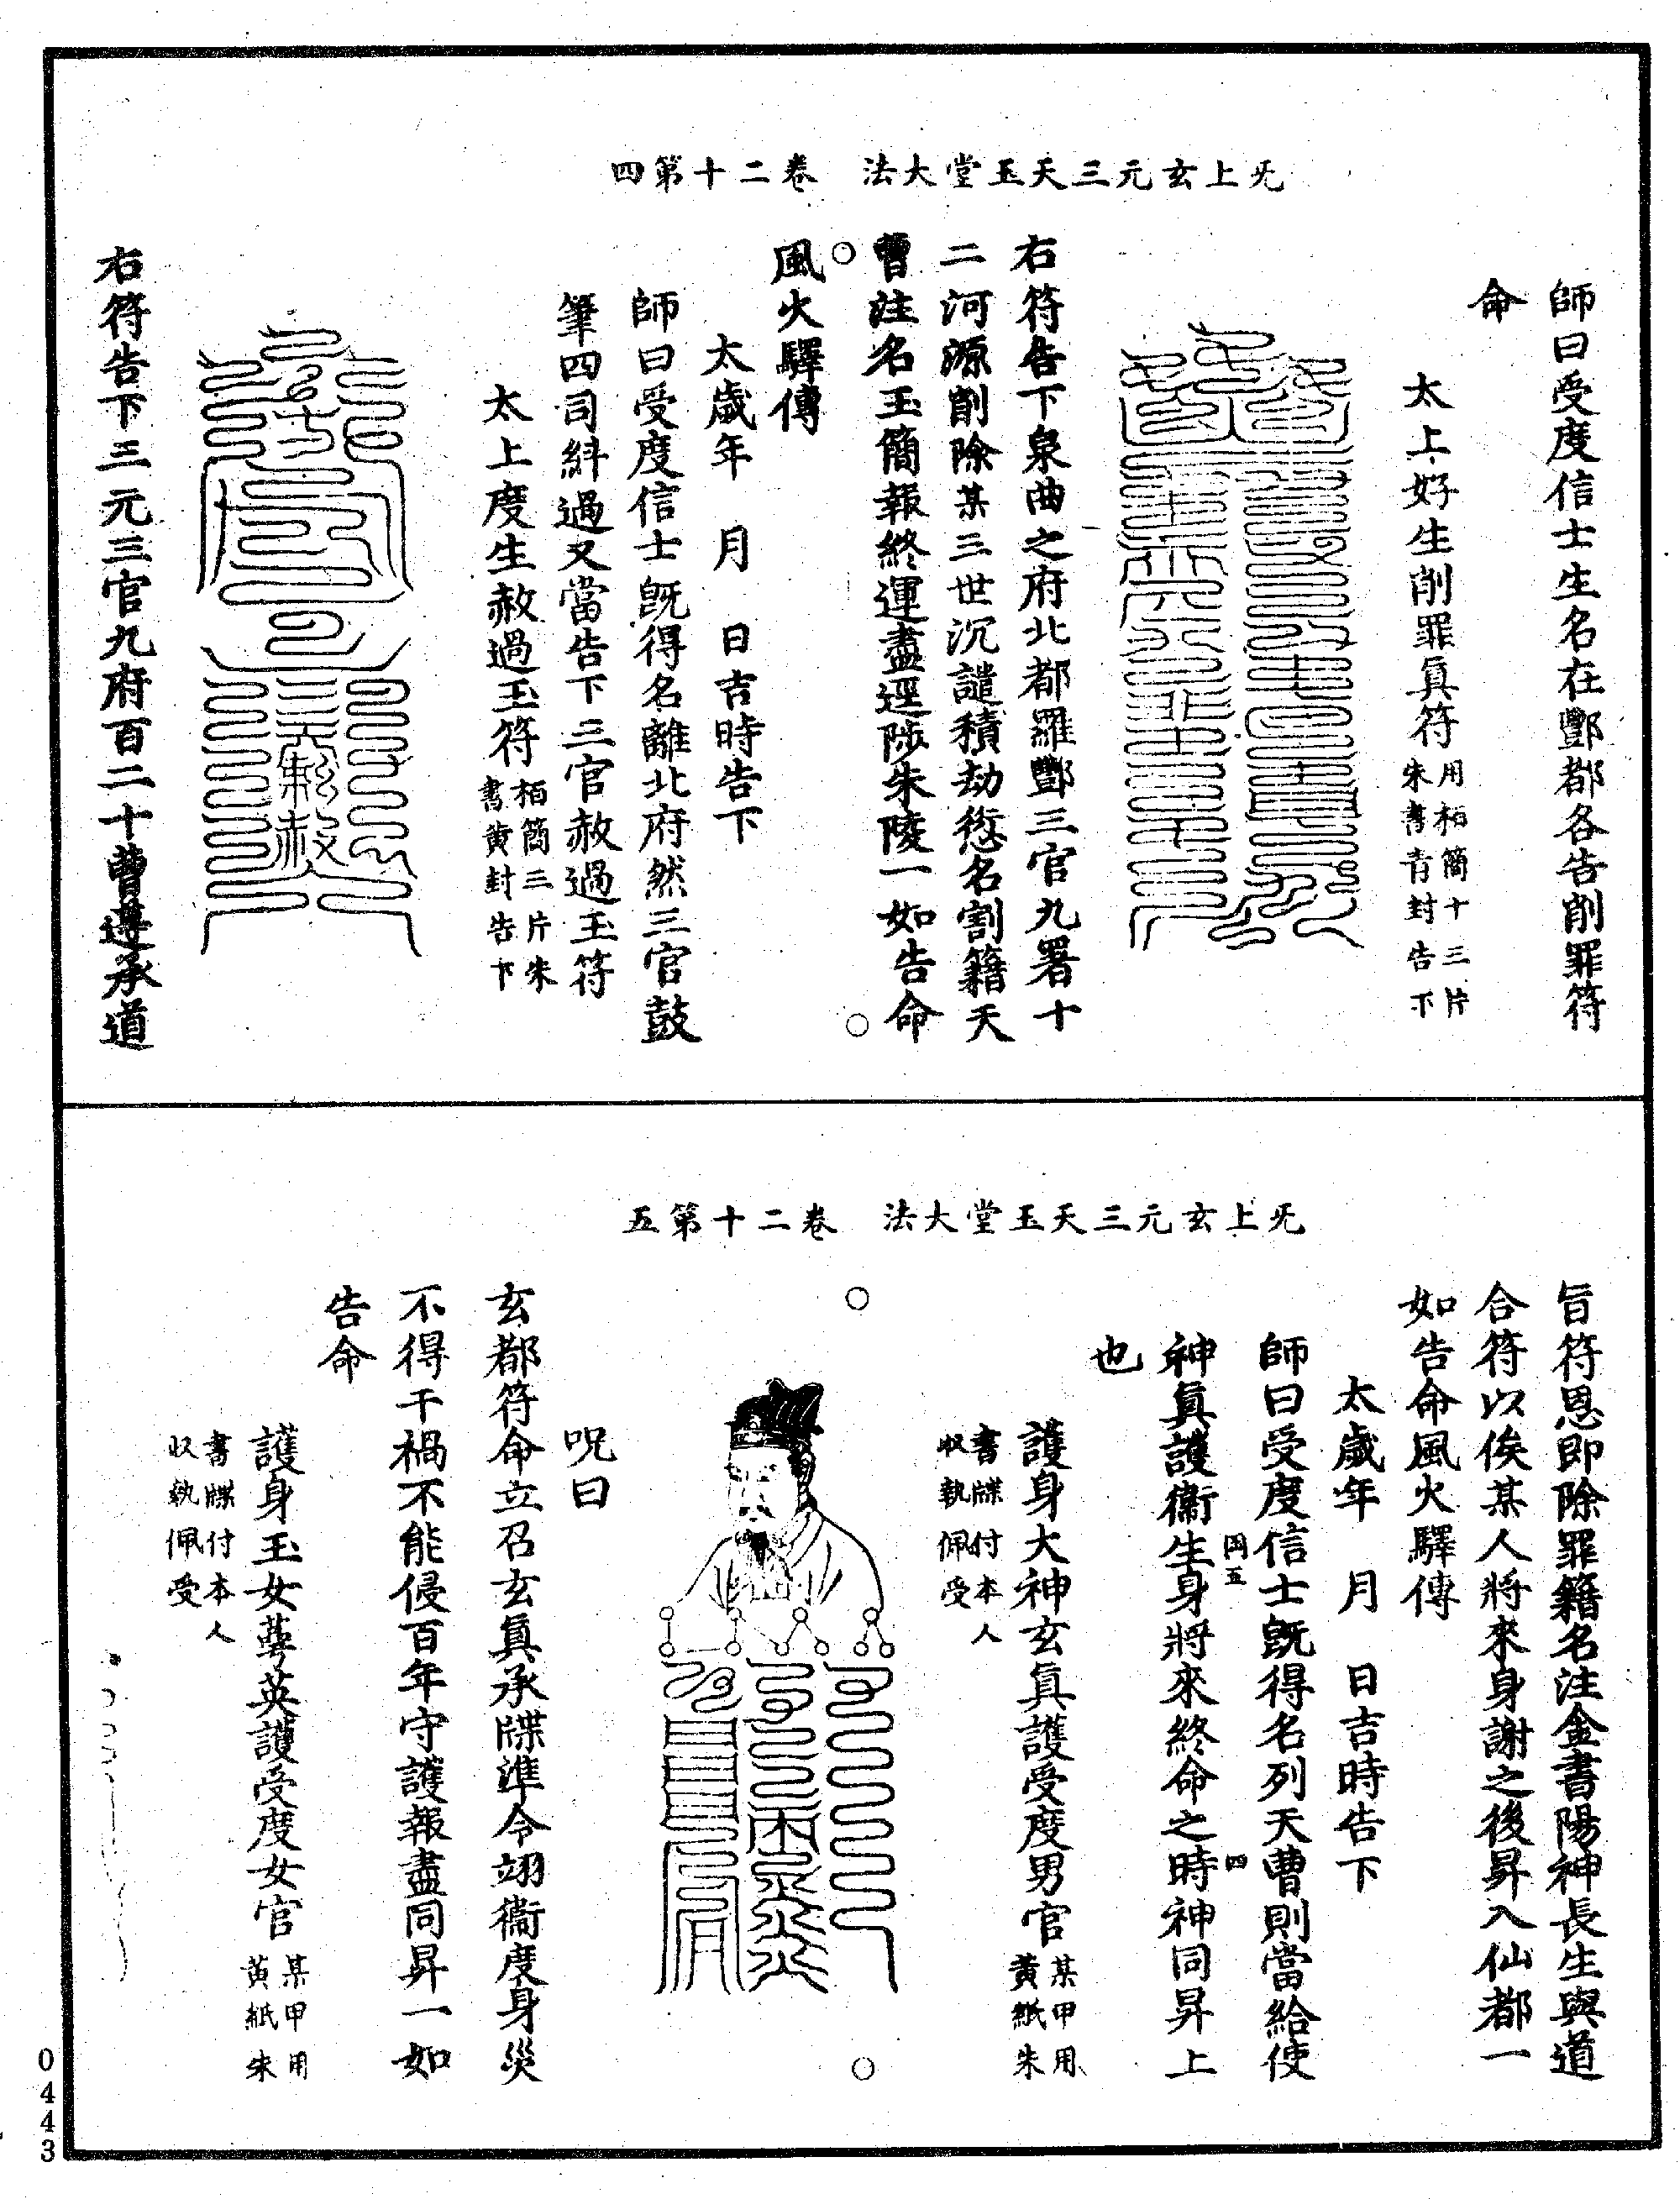 无上玄元三天玉堂大法　卷二十第四
師曰受度信士生名在酆都各告削罪符
命
太上好生削罪真符用栢簡十三片朱書青封告下
右符告下泉曲之府北都羅酆三官九署十
二河源削除某三世沉譴積劫愆名割籍天
曹注名玉簡報終運盡逕陟朱陵一如告命
風火驛傳
太歲年　月　日吉時告下
師曰受度信士既得名離北府然三官鼓
筆四司糾過又當告下三官赦過玉符
太上度生赦過玉符栢簡三片朱書黄封告下
右符告下三元三官九府百二十曹遵承道
无上玄元三天玉堂大法　卷二十第五
旨符恩即除罪籍名注金書陽神長生與道
合符以俟某人將來身謝之後昇入仙都一
如告命風火驛傳
太歲年　月　日吉時告下
師曰受度信士既得名列天曹則當給使
神真護衛生身將來終命之時神同昇上
也
護身大神玄真護受度男官某甲用黃紙朱書牒付本人收執佩受
咒曰
玄都符命立召玄真承牒準令翊衛度身災
不得干禍不能侵百年守護報盡同昇一如
告命
護身玉女萼英護受度女官某甲用黃紙朱書牒付本人收執佩受
0443